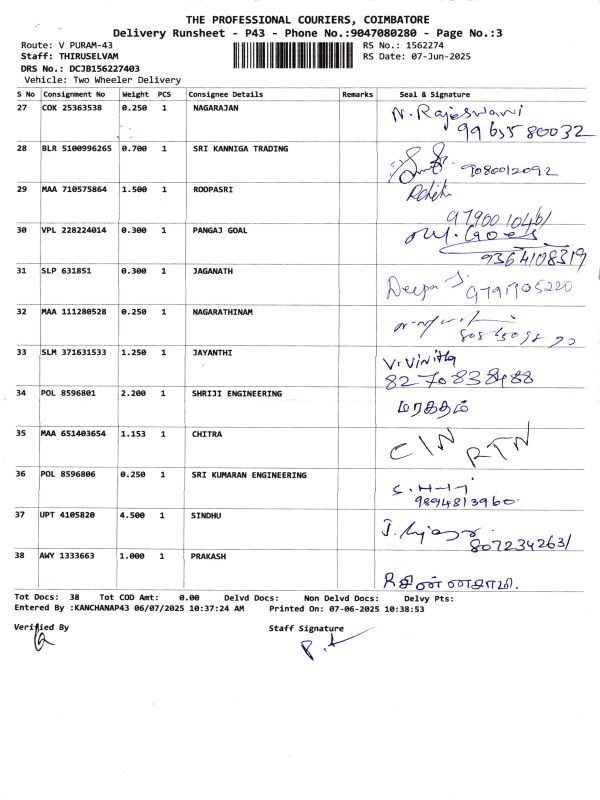 THE PROFESSIONAL COURIERS, COIMBATORE
Delivery Runsheet - P43 - Phone No.:9047080280 - Page No.:3
Route: V PURAM-43 RS No.: 1562274
Staff: THIRUSELVAM RS Date: 07-Jun-2025
DRS No.: DCJB156227403
Vehicle: Two Wheeler Delivery
S No Consignment No Weight PCS Consignee Details Remarks Seal & Signature
27 COK 25363538 0.250 1 NAGARAJAN N. Rajeswari
28 BLR 5100996265 0.700 1 SRI KANNIGA TRADING 9080012092
29 MAA 710575864 1.500 1 ROOPASRI
30 VPL 228224014 0.300 1 PANGAJ GOAL
9364108319
31 SLP 631851 0.300 1 JAGANATH Deepa J.
9791705220
32 MAA 111280528 0.250 1 NAGARATHINAM
33 SLM 371631533 1.250 1 JAYANTHI V.Vinitha
8270838488
34 POL 8596801 2.200 1 SHRIJI ENGINEERING மரகதம்
35 MAA 651403654 1.153 1 CHITRA C/N RTN
36 POL 8596806 0.250 1 SRI KUMARAN ENGINEERING
9894813960
37 UPT 4105820 4.500 1 SINDHU
8072342631
38 AWY 1333663 1.000 1 PRAKASH
Tot Docs: 38 Tot COD Amt: 0.00 Delvd Docs: Non Delvd Docs: Delvy Pts:
Entered By :KANCHANAP43 06/07/2025 10:37:24 AM Printed On: 07-06-2025 10:38:53
Verified By Staff Signature